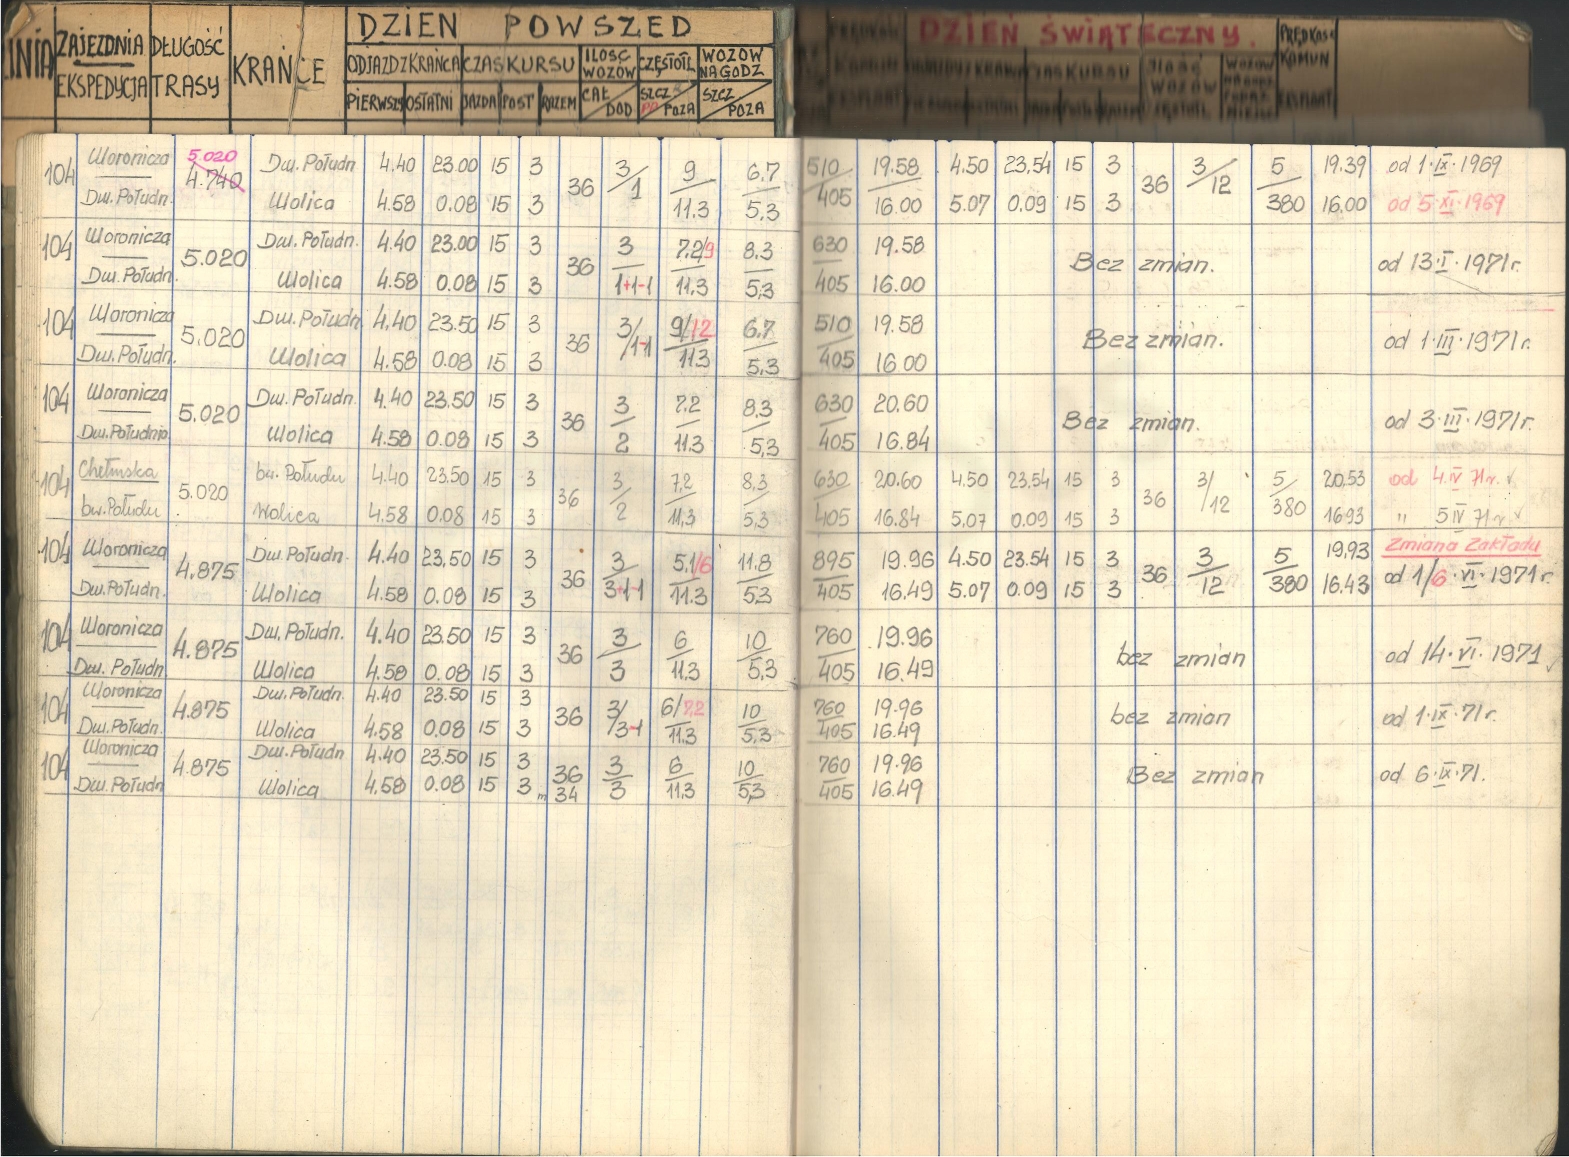 DZIEŃ POWSZED
LINIA ZAJEZDNIA DŁUGOŚĆ KRAŃCE ODJAZD Z KRAŃCA CZAS KURSU ILOŚĆ WOZÓW CZĘSTOTL WOZÓW NA GODZ
EKSPEDYCJA TRASY PIERWSZY OSTATNI JAZDA POST RAZEM CAŁ/DOD SZCZ PO/POZA SZCZ/POZA
DZIEŃ ŚWIĄTECZNY.
104 Woronicza 5.020 4.740 Dw. Połudn 4.40 23.00 15 3 36 3/1 9 6.7 510 19.58 4.50 23.54 15 3 36 3/12 5 19.39 od 1·IX·1969
Dw. Połudn. Wolica 4.58 0.08 15 3 11,3 5,3 405 16.00 5.07 0.09 15 3 380 16.00 od 5·XI·1969
104 Woronicza 5.020 Dw. Połudn. 4.40 23.00 15 3 36 3 7,2/9 8,3 630 19.58 Bez zmian. od 13·I·1971r.
Dw. Połudn. Wolica 4.58 0.08 15 3 1+1-1 11,3 5,3 405 16.00
104 Woronicza 5.020 Dw. Połudn 4.40 23.50 15 3 36 3/1-1 9/12 6.7 510 19.58 Bez zmian. od 1·III·1971r.
Dw. Połudn. Wolica 4.58 0.08 15 3 11,3 5,3 405 16.00
104 Woronicza 5.020 Dw. Połudn. 4.40 23.50 15 3 36 3 7,2 8,3 630 20.60 Bez zmian. od 3·III·1971r.
Dw. Południo Wolica 4.58 0.08 15 3 2 11,3 5,3 405 16.84
104 Chełmska 5.020 Dw. Połudn 4.40 23.50 15 3 36 3 7,2 8,3 630 20.60 4.50 23.54 15 3 36 3/12 5 20,53 od 4.IV 71r.
Dw. Połudn Wolica 4.58 0.08 15 3 2 11,3 5,3 405 16.84 5.07 0.09 15 3 380 1693 " 5 IV 71r
Zmiana Zakładu
104 Woronicza 4.875 Dw. Połudn. 4.40 23,50 15 3 36 3 5.1/6 11.8 895 19.96 4.50 23.54 15 3 36 3/12 5 19,93 od 1/6·VI·1971r.
Dw. Połudn. Wolica 4.58 0.08 15 3 3+1-1 11.3 5,3 405 16.49 5.07 0.09 15 3 380 16.43
104 Woronicza 4.875 Dw. Połudn. 4.40 23.50 15 3 36 3 6 10 760 19.96 bez zmian od 14·VI·1971
Dw. Połudn. Wolica 4.58 0.08 15 3 3 11,3 5,3 405 16.49
104 Woronicza 4.875 Dw. Połudn. 4.40 23.50 15 3 36 3/3-1 6/7,2 10 760 19.96 bez zmian od 1·IX·71r.
Dw. Połudn. Wolica 4.58 0.08 15 3 11.3 5,3 405 16.49
104 Woronicza 4.875 Dw. Połudn 4.40 23.50 15 3 36 3 6 10 760 19.96 Bez zmian od 6·IX·71.
Dw. Połudn Wolica 4.58 0.08 15 3 m 34 3 11,3 5,3 405 16.49